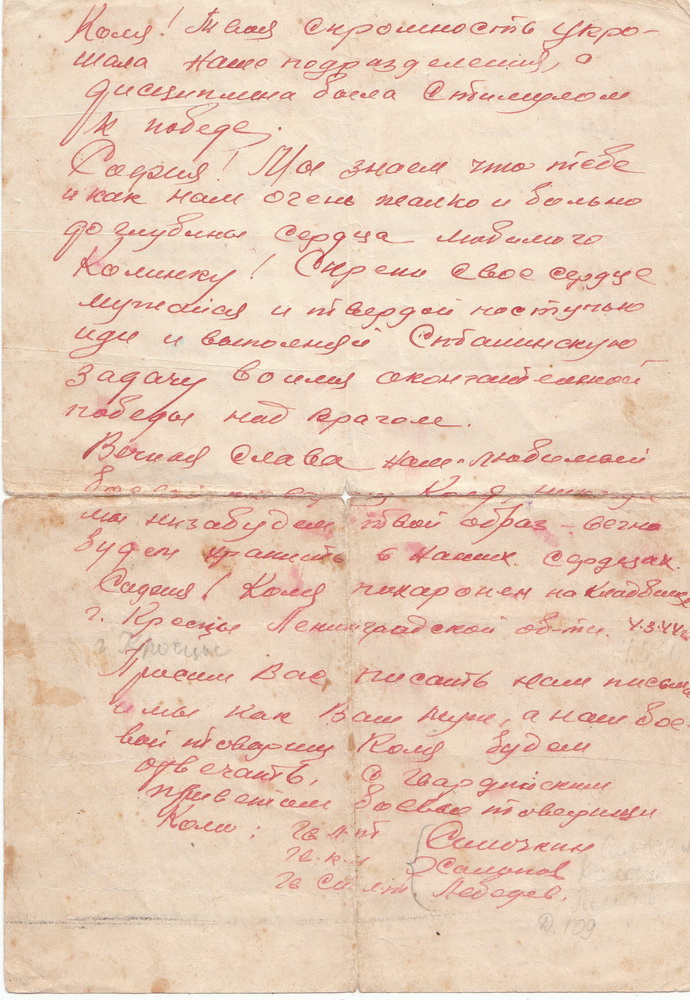 Коля! Твоя скромность укро-
шала наше подразделения, а
дисциплина была стимулом
к победе.
София! Мы знаем что тебе
и как нам очень жалко и больно
до глубины сердца любимого
Колинку! Скрепи свое сердце
мужайся и твердой поступью
иди и выполняй Сталинскую
задачу во имя окончательной
победы над врагом.
Вечная слава наш любимый
боевой Коля, никогда
мы низабудем твой образ – вечно
будем хранить в наших сердцах.
София! Коля похаронен на кладбище
г. Кресцы Ленинградской об-ти. 4.3.44г
г. Кресцы
Просим Вас писать нам письма
и мы как Ваш муж, а наш бое-
вой товарищ Коля будем
отвечать, с гвардейским
приветом боевые товарищи
Коли: гв. л-т Симочкин
гв. к-н
гв. ст. л-т Лебедев.
Д. 109